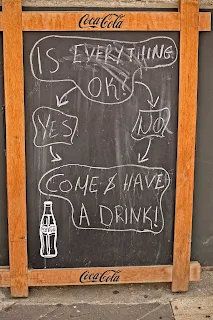 Coca-Cola
IS EVERYTHING
OK?
YES
NO
COME & HAVE
A DRINK!
Coca-Cola